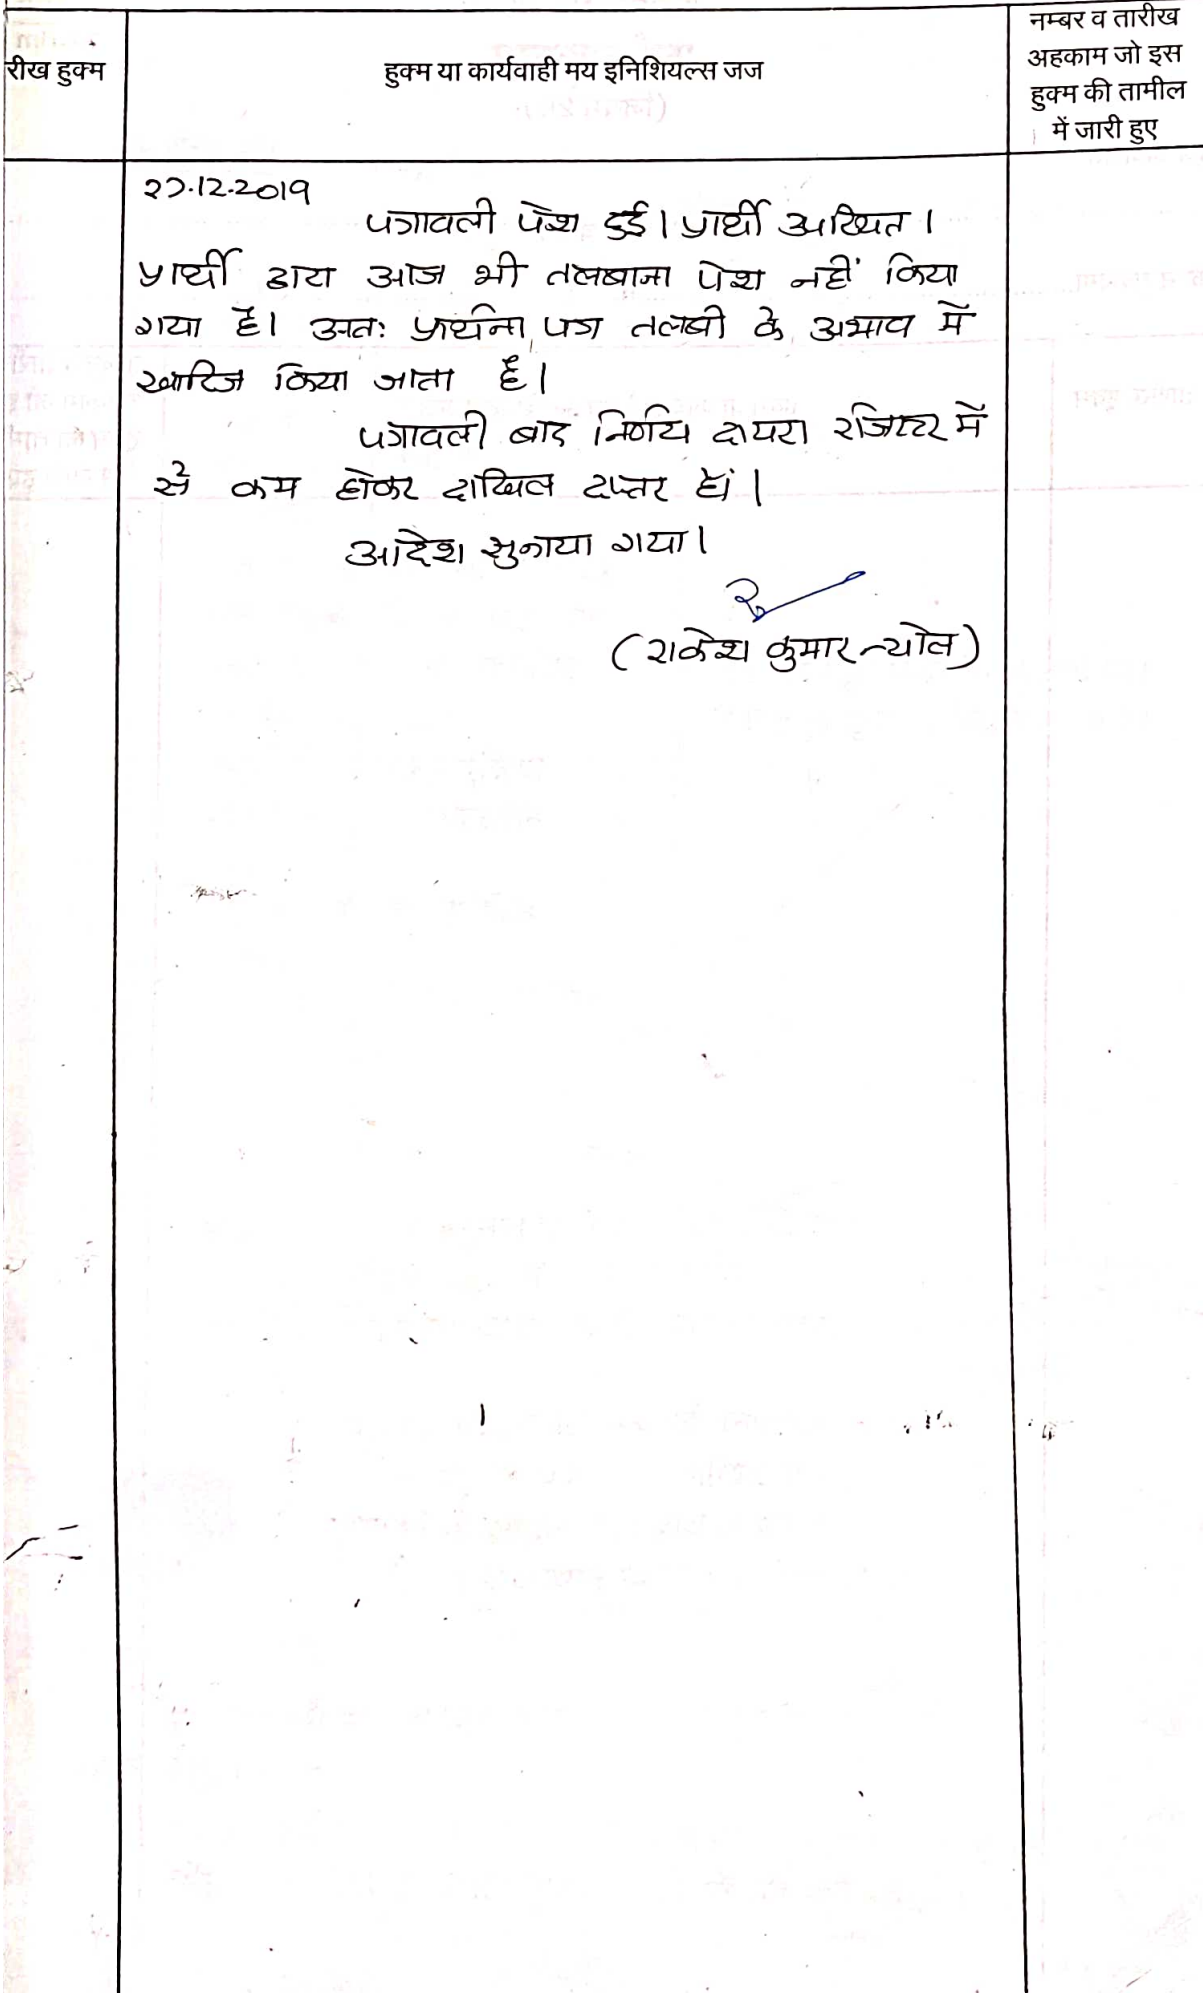 रीख हुक्म
हुक्म या कार्यवाही मय इनिशियल्स जज
नम्बर व तारीख
अहकाम जो इस
हुक्म की तामील
में जारी हुए
27.12.2019
पत्रावली पेश हुई। प्रार्थी
प्रार्थी द्वारा आज भी तलबाना पेश नहीं किया
गया है। अतः प्रार्थना पत्र तलबी के अभाव में
खारिज किया जाता है।
पत्रावली बाद निर्णय दायरा रजिस्टर में
से कम होकर दाखिल दफ्तर हो।
आदेश सुनाया गया।
(राकेश कुमार न्योल)